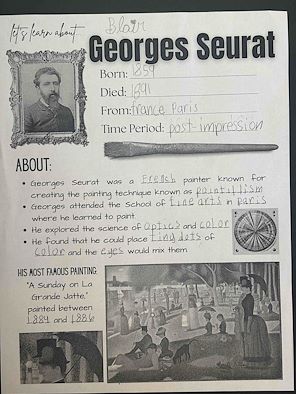 let's learn about
Blair
Georges Seurat
Born: 1859
Died: 1891
From: france Paris
Time Period: post-impression
ABOUT:
• Georges Seurat was a French painter known for
creating the painting technique known as pointillism
• Georges attended the School of fine arts in paris
where he learned to paint.
• He explored the science of optics and color
• He found that he could place tiny dots of
color and the eyes would mix them.
HIS MOST FAMOUS PAINTING:
"A Sunday on La
Grande Jatte,"
painted between
1884 and 1886